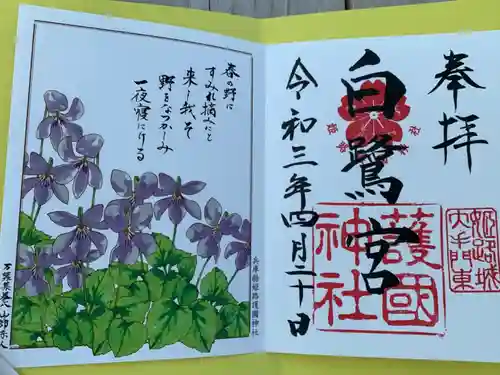 春の野に
すみれ摘みにと
来し我そ
野をなつかしみ
一夜寝にける
万葉集巻八 山部赤人
兵庫縣姫路護國神社
奉拝
白鷺宮
護國
神社
姫路城
大手門東
令和三年四月二十日